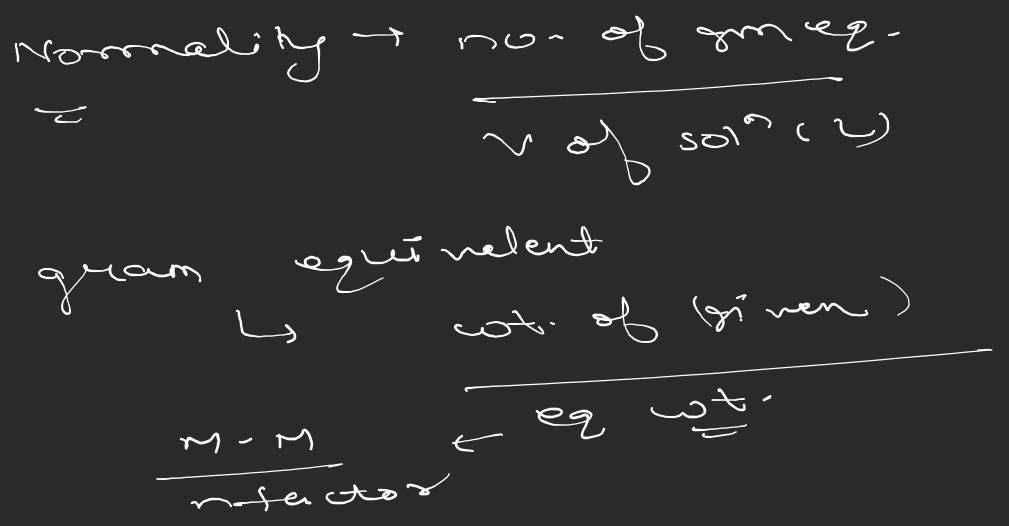 Normality → no. of gm eq.
V of solⁿ (L)
gram equivalent
↳ wt. of (given)
eq wt.
M-M ←
n-factor